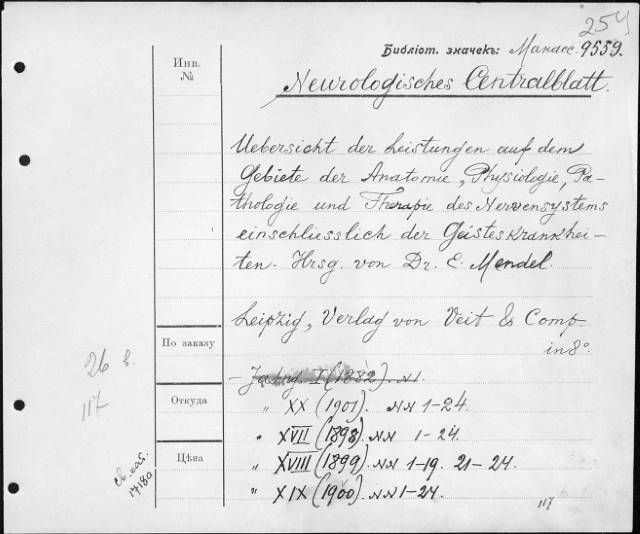 254
Библіот. значекъ: Манасс. 9559.
Инв.
№
Neurologisches Centralblatt.
Uebersicht der Leistungen auf dem
Gebiete der Anatomie, Physiologie, Pa-
thologie und Therapie des Nervensystems
einschliesslich der Geisteskrankhei-
ten. Hrsg. von Dr. E. Mendel.
Leipzig, Verlag von Veit & Comp.
in 8°.
По заказу
26 в.
117
– Jahrg. I (1882). №1.
Откуда
" XX (1901). №№ 1-24.
" XVII (1898). №№ 1-24.
Цѣна
" XVIII (1899). №№ 1-19. 21-24.
" XIX (1900). №№ 1-24.
17180
117